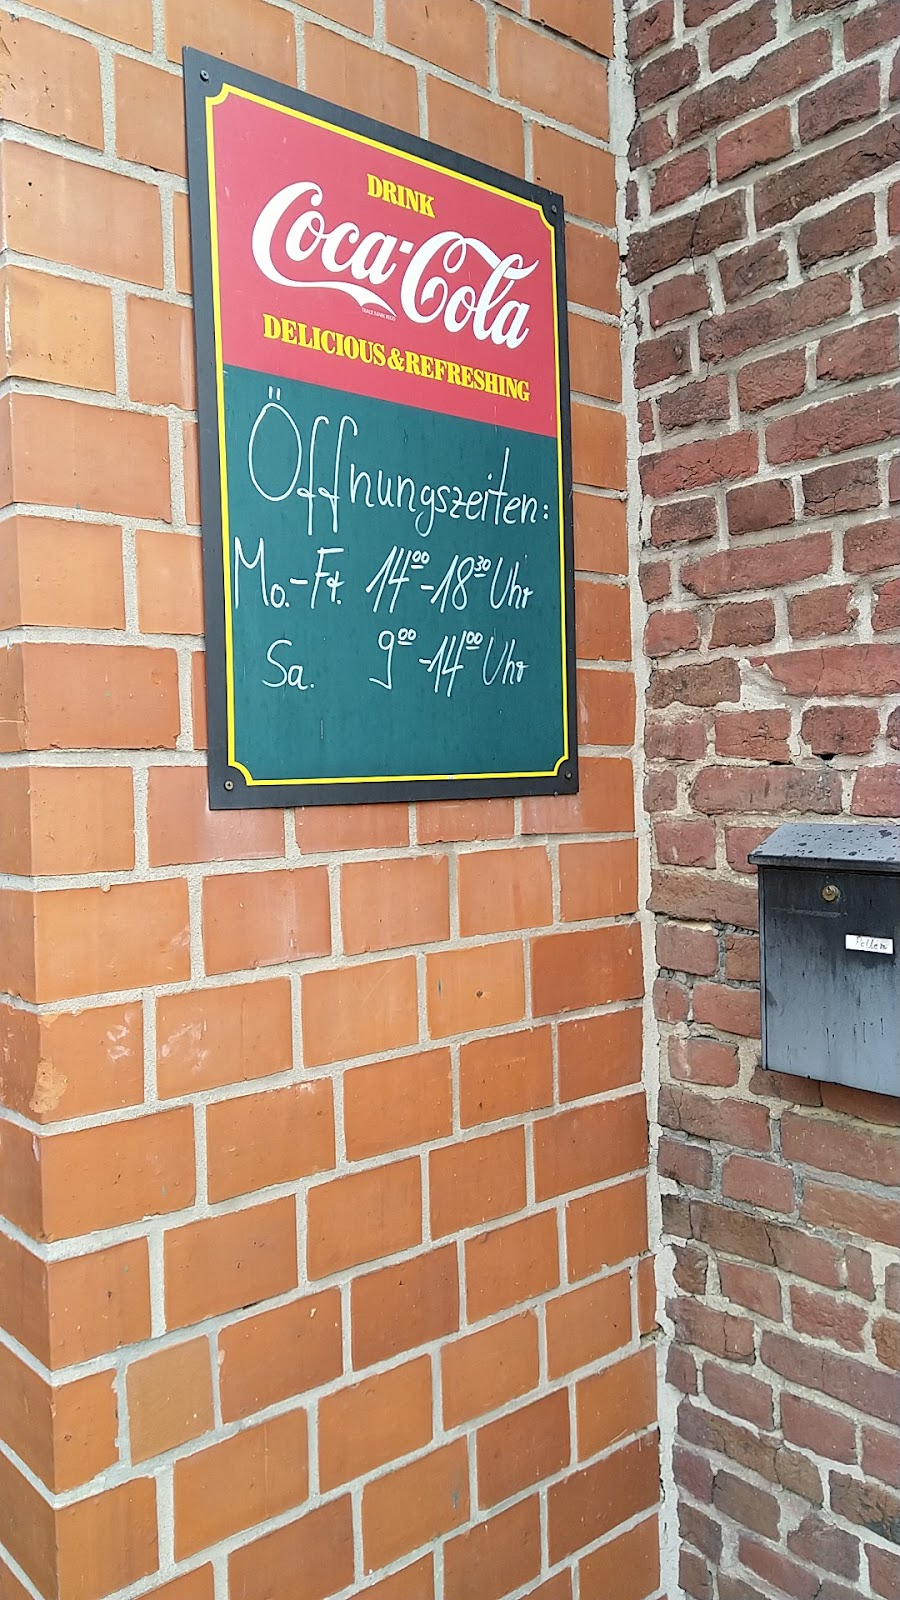 DRINK
Coca-Cola
TRADE MARK REGD
DELICIOUS & REFRESHING
Öffnungszeiten:
Mo.-Fr. 14⁰⁰-18³⁰ Uhr
Sa. 9⁰⁰-14⁰⁰ Uhr